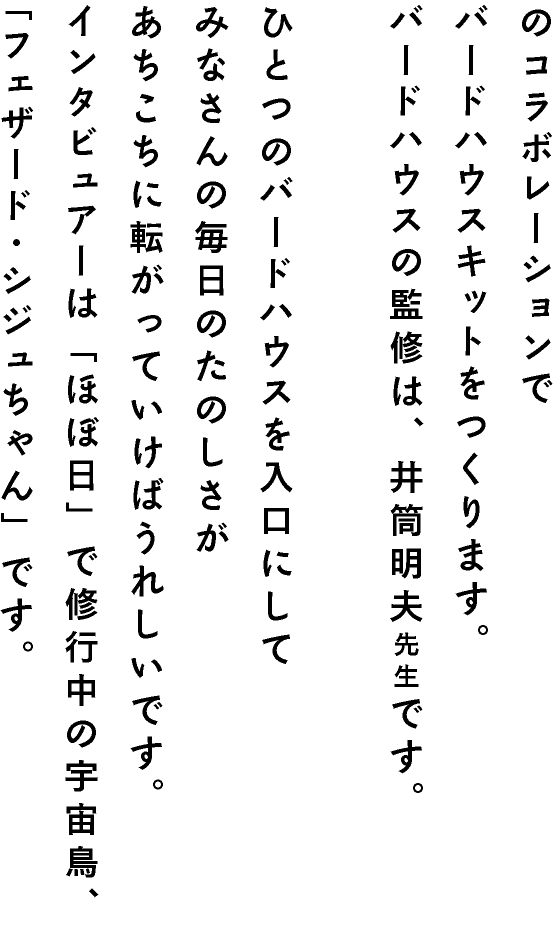 のコラボレーションで
バードハウスキットをつくります。
バードハウスの監修は、井筒明夫先生です。
ひとつのバードハウスを入口にして
みなさんの毎日のたのしさが
あちこちに転がっていけばうれしいです。
インタビュアーは「ほぼ日」で修行中の宇宙鳥、
「フェザード・シジュちゃん」です。